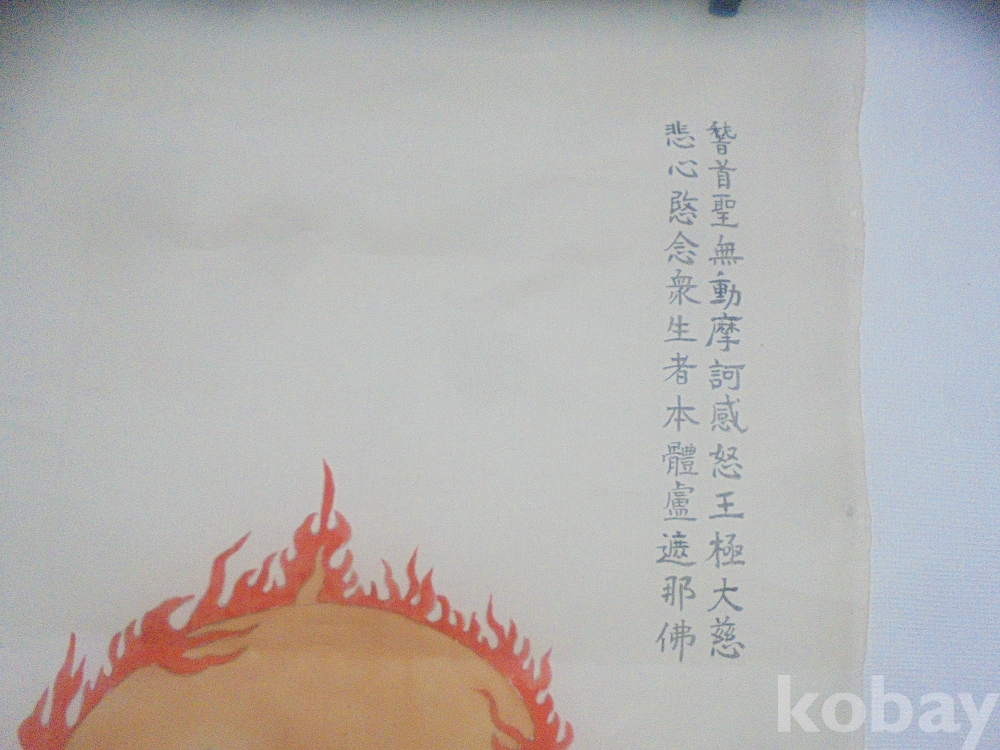 稽首聖無動摩訶感怒王極大慈
悲心愍念衆生者本體盧遮那佛
kobay